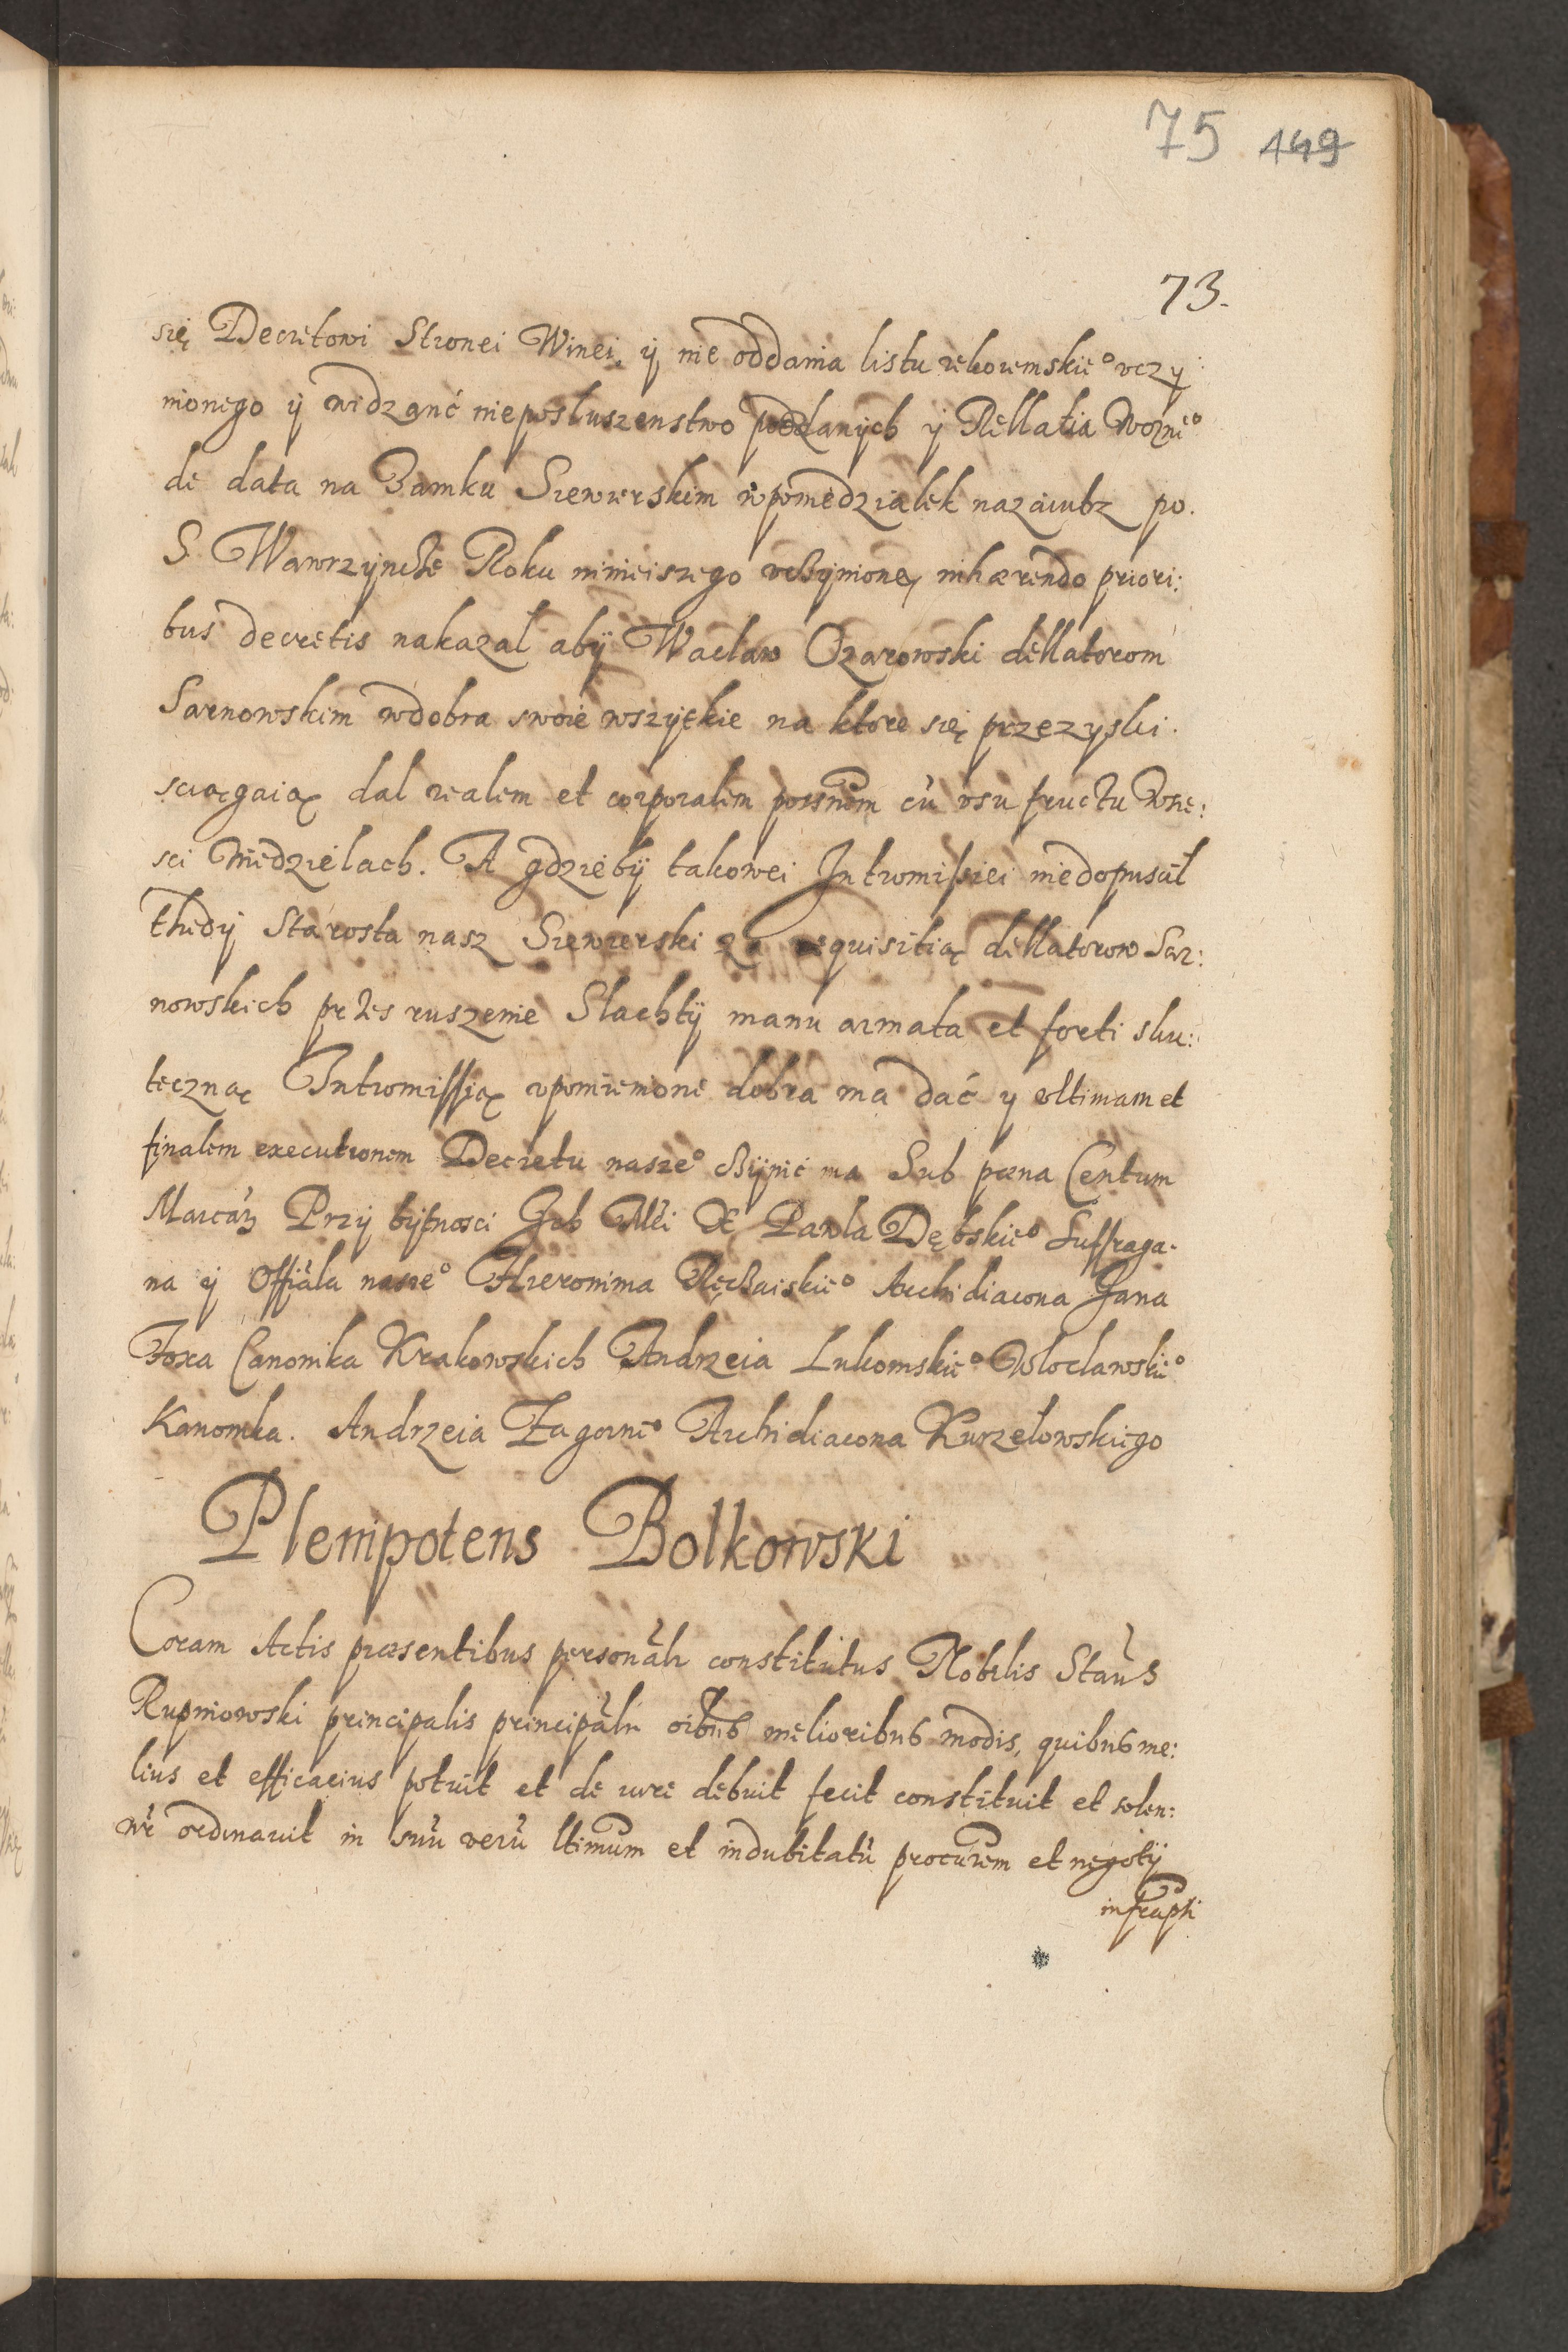 75 449
73.
się Decretowi Stronei Winei, ÿ nie oddania listu rękoiemskie° vczÿ
nionego ÿ widzęnć nieposłuszenstwo poddanÿch ÿ Rellatia Wozne°
de data na Zamku Siewierskim wponiedziałek nazaiutrz po.
S. Wawrzÿncże Roku ninieiszego vczÿnioneÿ inhærendo priori:
bus decretis nakazał abÿ Wacław Ozarowski dellatorom
Sarnowskim wdobra swoie wszÿtkie na ktore się przezyski.
sciągaią dal realem et corporalem possnem cũ vsu fructu Wsze:
sci Niedzielach. A gdziebÿ takowei Intromissiei niedopuscił
thedÿ Starosta nasz Siewierski za requisitią dellatorow Sar:
nowskich przes ruszenie Slachtÿ manu armata et forti sku:
teczną Intromissią wpomienione dobra ma dać y vltimam et
finalem executionem Decretu nasze° czÿnić ma Sub pœna Centum
Marcarz Przÿ bÿtnosci Ich Mci X Pawla Dębskie° Suffraga-
na ÿ Offićala nasze° Hieronima Ręczaiskie° Archidiacona Jana
Foxa Canonika Krakowskich Andrzeia Lukomskie° Wloclawskie°
Kanonika. Andrzeia Zagorne° Archidiacona Kurzelowskiego
Plenipotens Bolkowski
Coram Actis præsentibus personalr constitutus Nobilis Staus
Rupniowski principalis principalr oibus melioribus modis, quibus me:
lius et efficacius potuit et de iure debuit fecit constituit et solen:
nr ordinauit in suũ verũ ltimum et indubitatũ procurem et negotÿ
infrapti